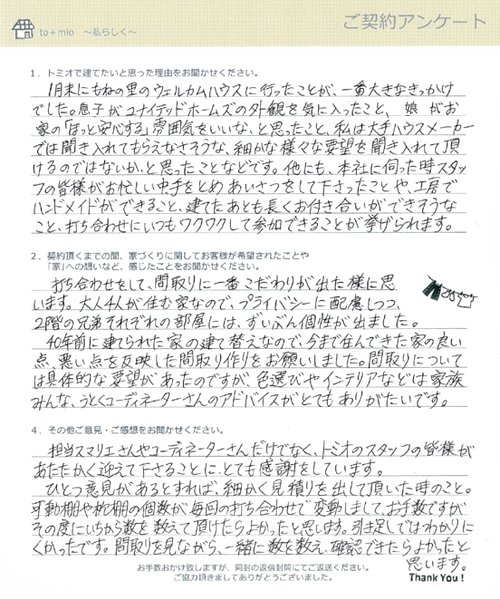 to+mio ～私らしく～
ご契約アンケート
1．トミオで建てたいと思った理由をお聞かせください。
1月末にもねの里のウェルカムハウスに行ったことが、一番大きなきっかけ
でした。息子がユナイテッドホームズの外観を気に入ったこと、娘がお
家の「ほっと安心する」雰囲気をいいな、と思ったこと、私は大手ハウスメーカー
では聞き入れてもらえなさそうな、細かな様々な要望を聞き入れて頂
けるのではないか、と思ったことなどです。他にも、本社に伺った時スタッ
フの皆様がお忙しい中手をとめあいさつをして下さったことや、工房で
ハンドメイドができること、建てたあとも長くお付き合いができそうな
こと、打ち合わせにいつもワクワクして参加できることが挙げられます。
2．契約頂くまでの間、家づくりに関してお客様が希望されたことや
「家」への想いなど、感じたことをお聞かせください。
打ち合わせをして、間取りに一番こだわりが出た様に思
います。大人4人が住む家なので、プライバシーに配慮しつつ、
2階の兄弟それぞれの部屋には、ずいぶん個性が出ました。
40年前に建てられた家の建て替えなので、今まで住んできた家の良い
点、悪い点を反映した間取り作りをお願いしました。間取りについて
は具体的な要望があったのですが、色選びやインテリアなどは家族
みんな、うとくコーディネーターさんのアドバイスがとてもありがたいです。
4．その他ご意見・ご感想をお聞かせください。
担当スマリエさんやコーディネーターさんだけでなく、トミオのスタッフの皆様が
あたたかく迎えて下さることに、とても感謝をしています。
ひとつ意見があるとすれば、細かく見積りを出して頂いた時のこと。
可動棚や枕棚の個数が毎回の打ち合わせで変動しまして、お手数ですが
その度にいちから数を数えて頂けたらよかったと思います。引き足しではわかりに
くかったです。間取りを見ながら、一緒に数を数え、確認できたらよかったと
思います。
お手数おかけ致しますが、同封の返信封筒にてご返送ください。
ご協力頂きましてありがとうございました。
Thank You !